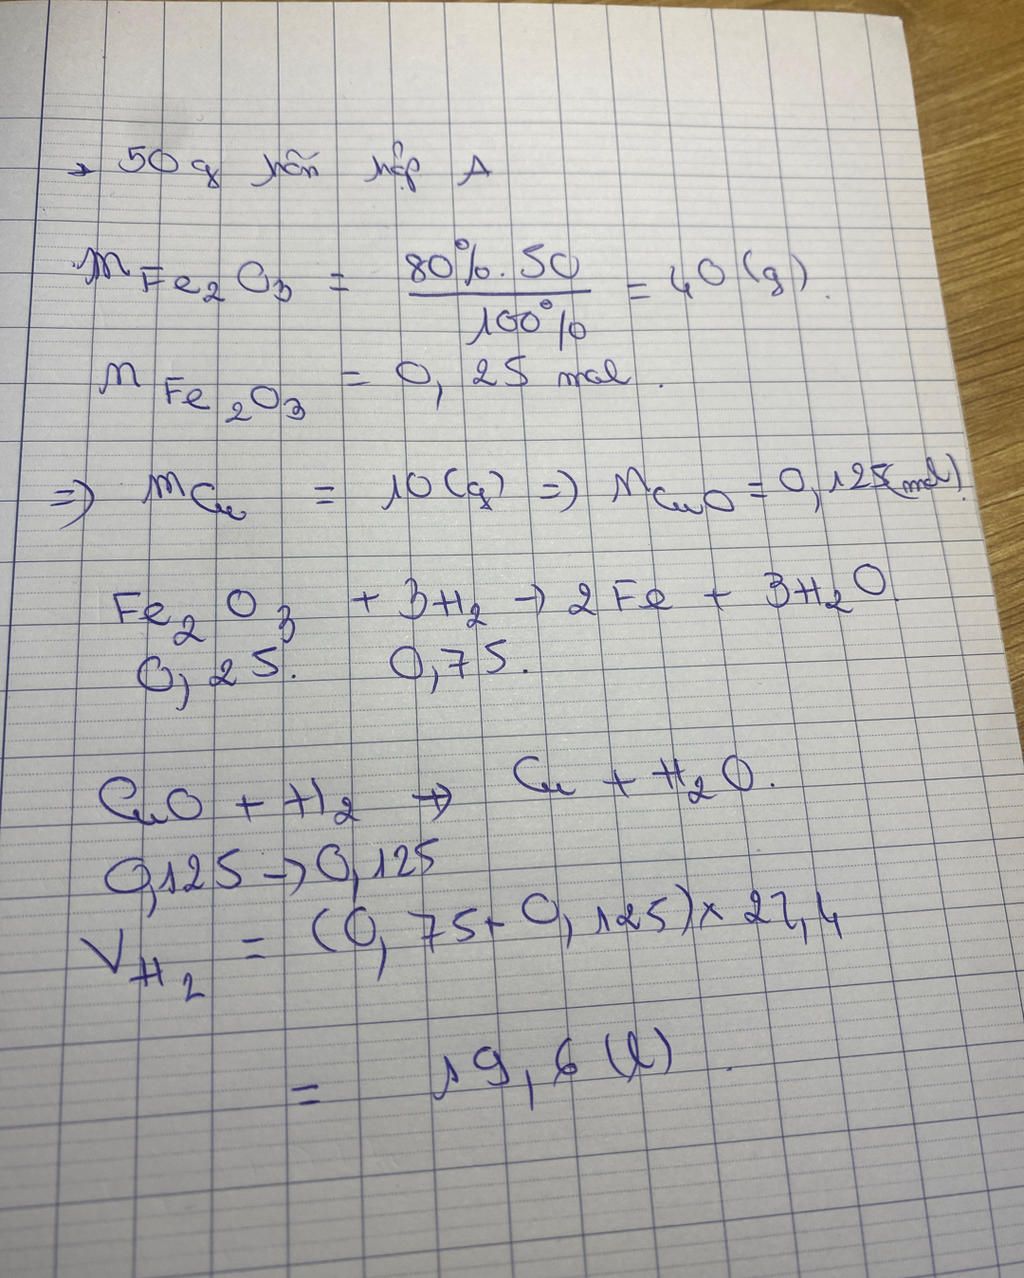 → 50g hỗn hợp A
m Fe₂O₃ = 80%.50 / 100% = 40(g).
n Fe₂O₃ = 0,25 mol.
=> mCu = 10(g) => nCuO = 0,125(mol).
Fe₂O₃ + 3H₂ → 2Fe + 3H₂O
0,25. 0,75.
CuO + H₂ → Cu + H₂O.
0,125 → 0,125
V H₂ = (0,75+0,125)x22,4
= 19,6(l).